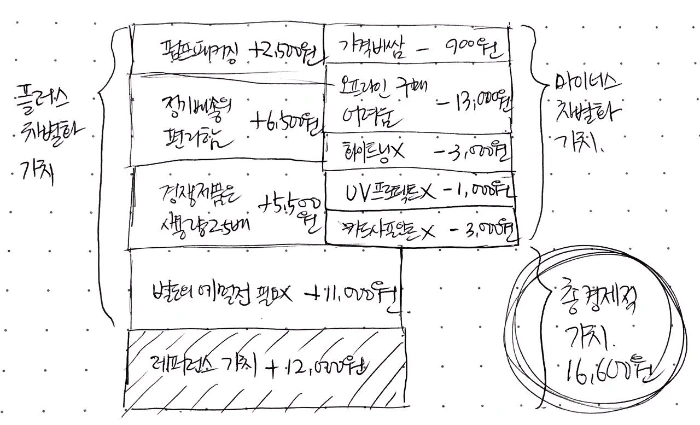 플러스
차별화
가치
펌프패키징 +2,500원
정기배송의
편리함 +6,500원
경쟁제품은
사용량2.5배 +5,500
원
별도의 에멀전 필요X +11,000원
레퍼런스 가치 +12,000원
가격비쌈 - 900원
오프라인 구매
어려움 -13,000원
화이트닝X -3,000원
UV프로텍트X -1,000원
카드사포인트X -3,000원
마이너스
차별화
가치.
총 경제적
가치.
16,600원